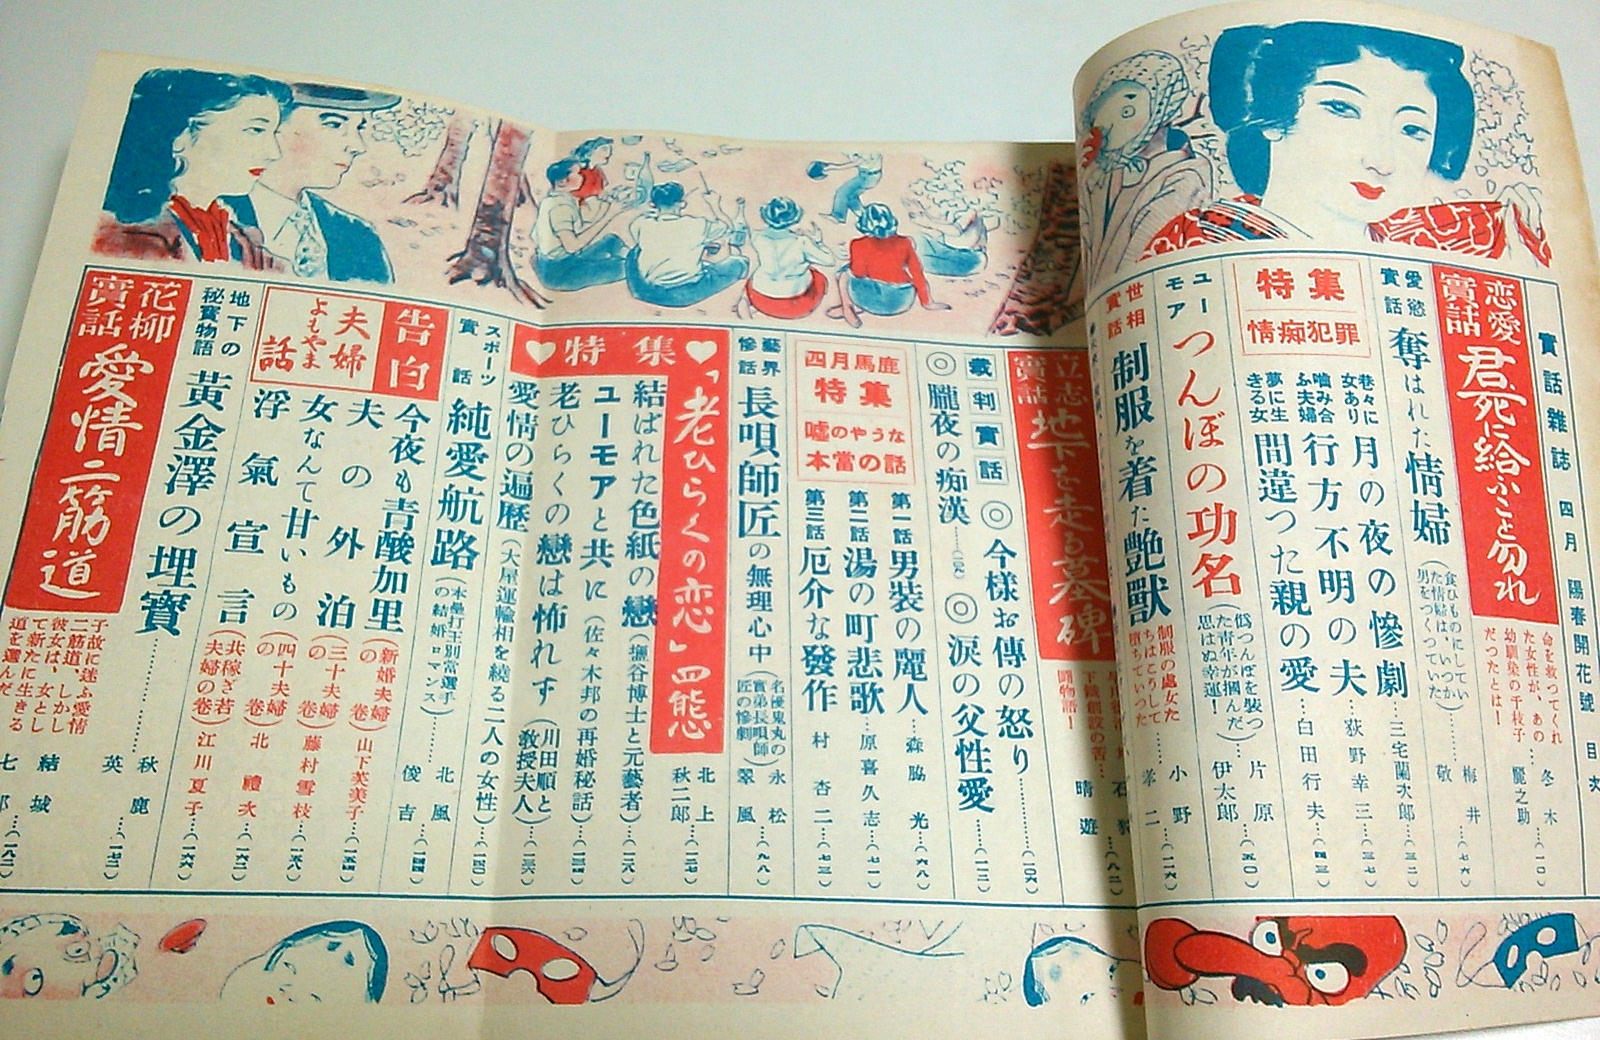 實話雜誌 四月 陽春開花號 目次
恋愛實話
君死に給ふこと勿れ
命を救つてくれ
た女性が、あの
幼馴染の千枝子
だつたとは!
冬木麗之助…(一〇)
愛慾實話
奪はれた情婦
食ひものにしてい
た情婦は、いつか
男をつくつていた
梅井敬…(七六)
特集
情痴犯罪
巷々に女あり
月の夜の慘劇…三宅蘭次郎…(三二)
嚙み合ふ夫婦
行方不明の夫…荻野幸三…(三七)
夢に生きる女
間違つた親の愛…白田行夫…(四三)
ユーモア
つんぼの功名
僞つんぼを裝つ
た青年が摑んだ
思はぬ幸運!
片原伊太郎…(五〇)
世相實話
制服を着た艶獸
制服の處女た
ちはこうして
堕ちていつた
小野孝二…(二六)
立志實話
地下を走る墓碑
下鐵創設の苦…
鬪物語!
晴遊…(八二)
裁判實話
◎今様お傳の怒り…(一〇六)
◎朧夜の痴漢
◎涙の父性愛…(一一二)
四月馬鹿
特集
嘘のやうな
本當の話
第一話 男装の麗人…森脇光…(六八)
第二話 湯の町悲歌…原喜久志…(七一)
第三話 厄介な發作…村杏二…(七三)
藝界慘話
長唄師匠の無理心中
名優鬼丸の
實弟長唄師
匠の慘劇
永松翠風…(九八)
♥特集♥
「老ひらくの恋」四態
北上秋二郎…(一二七)
結ばれた色紙の戀(塩谷博士と元藝者)…(一二八)
ユーモアと共に(佐々木邦の再婚秘話)…(一三四)
老ひらくの戀は怖れず(川田順と教授夫人)…(一三六)
愛情の遍歷(大屋運輸相を繞る二人の女性)
スポーツ實話
純愛航路
(本壘打王別當選手の結婚ロマンス)
北風俊吉…(一四〇)
告白
夫婦よもやま話
今夜も青酸加里(新婚夫婦の卷)山下芙美子…(一五四)
夫の外泊(三十夫婦の卷)藤村雪枝…(一五八)
女なんて甘いもの(四十夫婦の卷)北禮次…(一六二)
浮氣宣言(共稼ぎ若夫婦の卷)江川夏子…(一六六)
地下の秘寶物語
黃金澤の埋寶
秋鹿英…(一七二)
花柳實話
愛情二筋道
子故に迷ふ愛情
二筋道、しかし
彼女は、女とし
て新たに生きる
道を選んだ
結城七郎…(一八二)